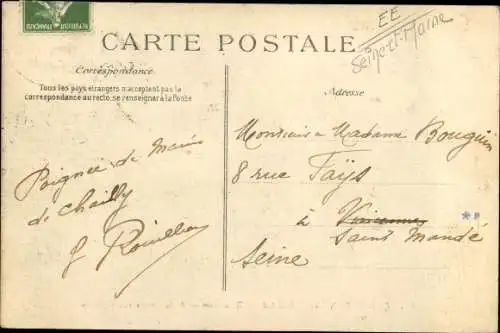 CARTE POSTALE
EE
Seine-et-Marne
Correspondance
Tous les pays étrangers n'acceptent pas la
correspondance au recto, se renseigner à la Poste
Adresse
Poignée de Mains
de Chailly
G Rouillon
Monsieur & Madame Bouguin
8 rue Faÿs
à Vincennes
Saint Mandé
Seine